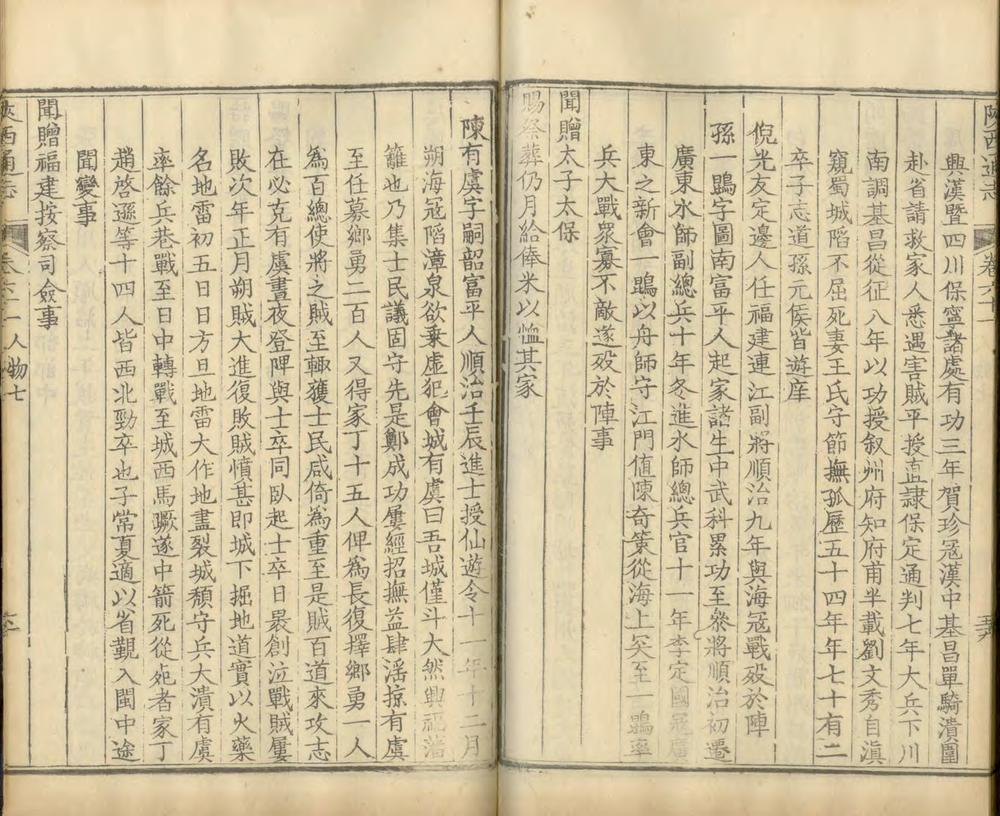 陝西通志 卷六十一
興漢暨四川保寧諸處有功三年賀珍冦漢中基昌單騎潰圍
赴省請救家人悉遇害賊平授直隷保定通判七年大兵下川
南調基昌從征八年以功授叙州府知府甫半載劉文秀自滇
窺蜀城陷不屈死妻王氏守節撫孤歷五十四年年七十有二
卒子志道孫元侯皆遊庠
倪光友定邊人任福建連江副將順治九年與海冦戰歿於陣
孫一鵾字圖南富平人起家諸生中武科累功至叅將順治初遷
廣東水師副總兵十年冬進水師總兵官十一年李定國冦廣
東之新會一鵾以舟師守江門値陳奇策從海上突至一鵾率
兵大戰衆寡不敵遂歿於陣事
聞贈太子太保
賜祭葬仍月給俸米以恤其家
陳有虞字嗣韶富平人順治壬辰進士授仙遊令十一年十二月
朔海冦陷漳泉欲乗虚犯會城有虞曰吾城僅斗大然興福藩
籬也乃集士民議固守先是鄭成功屢經招撫益肆滛掠有虞
至任募鄉勇二百人又得家丁十五人俾爲長復擇鄉勇一人
爲百總使將之賊至輙獲士民咸倚爲重至是賊百道來攻志
在必克有虞晝夜登陴與士卒同卧起士卒日裹創泣戰賊屢
敗次年正月朔賊大進復敗賊憤甚即城下掘地道實以火藥
名地雷初五日日方旦地雷大作地盡裂城頽守兵大潰有虞
率餘兵巷戰至日中轉戰至城西馬蹶遂中箭死從死者家丁
趙啓遜等十四人皆西北勁卒也子常夏適以省覲入閩中途
聞變事
聞贈福建按察司僉事
陝西通志 卷六十一 人物七